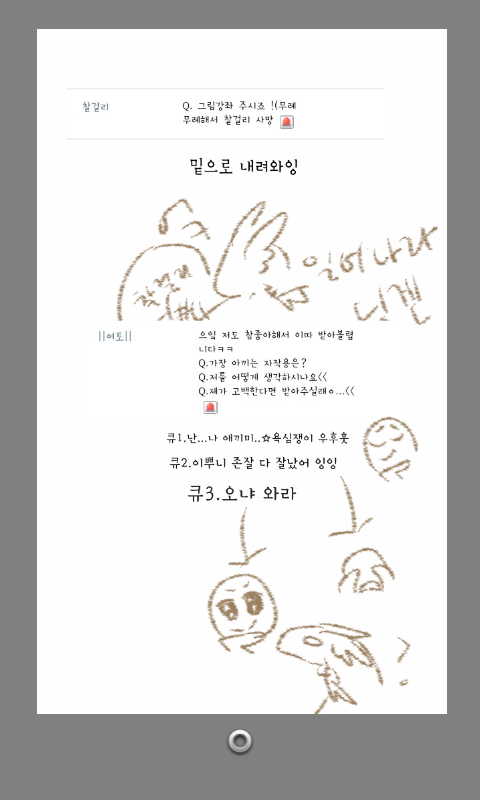 찰걸리
Q. 그림강좌 주시죠 !(무례
무례해서 찰걸리 사망
밑으로 내려와잉
찰걸리
일어나라
닌겐
||여토||
으잌 저도 참좋아해서 이따 받아볼렵
니다ㅋㅋ
Q.가장 아끼는 자작용은?
Q.저를 어떻게 생각하시나요<<
Q.제가 고백한다면 받아주실래ㅇ...<<
큐1.난...나 애끼미..☆욕심쟁이 우후훗
큐2.이뿌니 존잘 다 잘났어 잉잉
큐3.오냐 와라
?